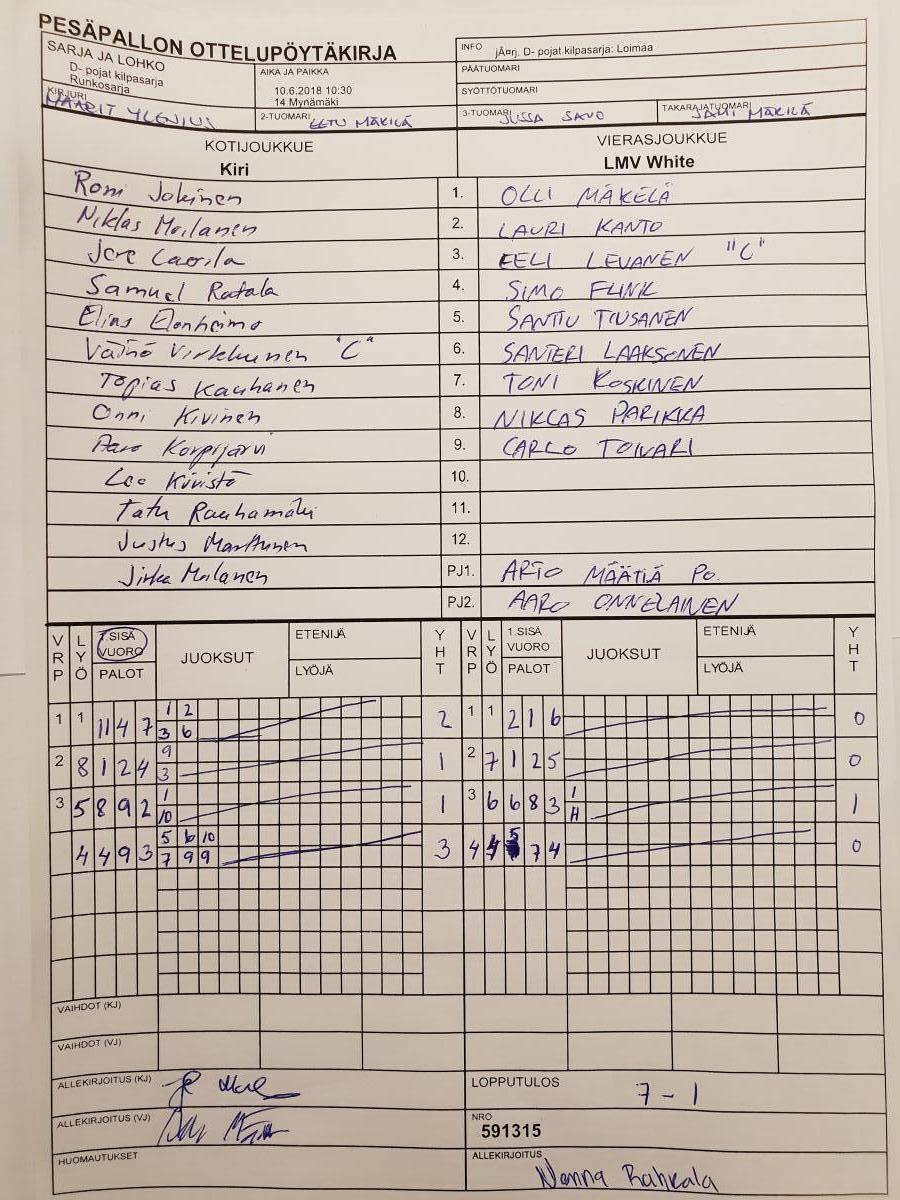 PESÄPALLON OTTELUPÖYTÄKIRJA
SARJA JA LOHKO
D- pojat kilpasarja
Runkosarja
AIKA JA PAIKKA
10.6.2018 10:30
14 Mynämäki
INFO jÃ¤rj. D- pojat kilpasarja: Loimaa
PÄÄTUOMARI
SYÖTTÖTUOMARI
KIRJURI MAARIT YLENIUS
2-TUOMARI EETU MÄKILÄ
3-TUOMARI JUSSA SAVO
TAKARAJATUOMARI SAMI MÄKILÄ
KOTIJOUKKUE
Kiri
VIERASJOUKKUE
LMV White
Romi Jokinen 1. OLLI MÄKELÄ
Niklas Moilanen 2. LAURI KANTO
Jere Caorila 3. EELI LEVANEN "C"
Samuel Ratala 4. SIMO FLINK
Elias Elonheimo 5. SANTTU TIUSANEN
Väinö Virkkunen "C" 6. SANTERI LAAKSONEN
Topias Kauhanen 7. TONI KOSKINEN
Onni Kivinen 8. NIKLAS PARIKKA
Aaro Korpijärvi 9. CARLO TOIVARI
Leo Kivistö 10.
Tatu Rauhamäki 11.
Justus Marttunen 12.
Jirka Moilanen PJ1. ARTO MÄÄTTÄ PO.
PJ2. AARO ONNELAINEN
VRP LYÖ 1.SISÄ VUORO PALOT JUOKSUT ETENIJÄ LYÖJÄ YHT VRP LYÖ 1.SISÄ VUORO PALOT JUOKSUT ETENIJÄ LYÖJÄ YHT
1 1 11 4 7 1 2 2 1 1 2 1 6 0
3 6
2 8 1 2 4 9 1 2 7 1 2 5 0
3
3 5 8 9 2 1 1 3 6 6 8 3 1 1
10 H
4 4 9 3 5 6 10 3 4 4 5 7 4 0
7 9 9
VAIHDOT (KJ)
VAIHDOT (VJ)
ALLEKIRJOITUS (KJ)
LOPPUTULOS 7 - 1
ALLEKIRJOITUS (VJ)
NRO
591315
HUOMAUTUKSET
ALLEKIRJOITUS Nenna Rahkala